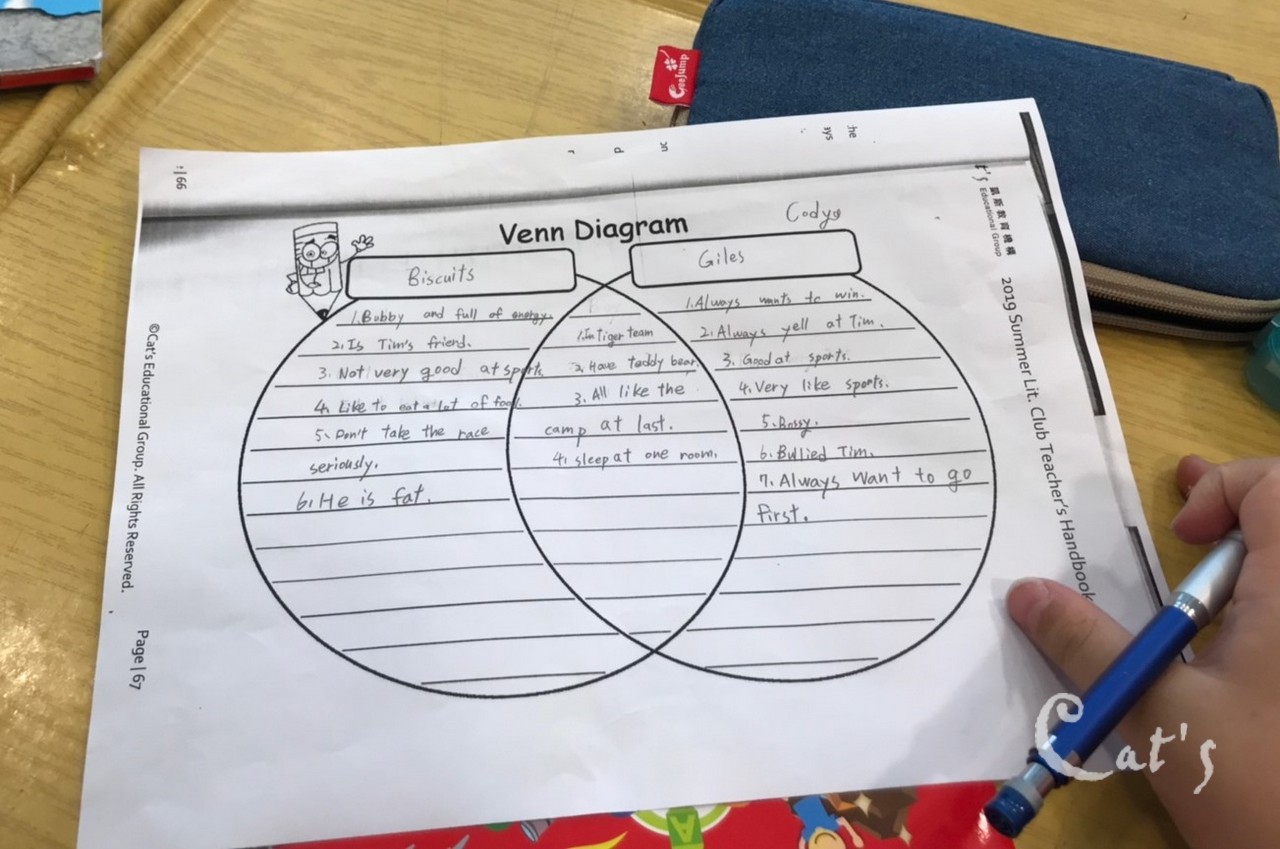 Goojump
he
ys
Page | 66
Venn Diagram
Cody
Biscuits
1. Bubby and full of energy.
2. Is Tim's friend.
3. Not very good at sports
4. Like to eat a lot of food.
5. Don't take the race
seriously.
6. He is fat.
1. In tiger team
2. Have teddy bear
3. All like the
camp at last.
4. sleep at one room.
Giles
1. Always wants to win.
2. Always yell at Tim.
3. Good at sports.
4. Very like sports.
5. Bossy.
6. Bullied Tim.
7. Always want to go
first.
t's 凱斯教育機構
Educational Group
2019 Summer Lit. Club Teacher's Handbook
©Cat's Educational Group. All Rights Reserved.
Page | 67
Cat's